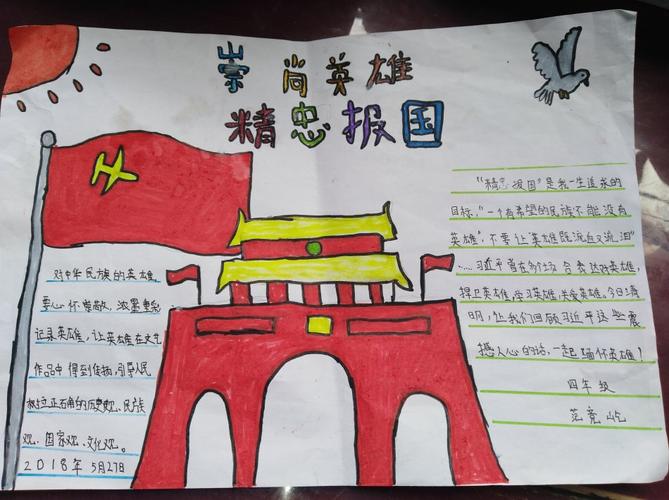 崇尚英雄
精忠报国
对中华民族的英雄,
要心怀崇敬,浓墨重彩
记录英雄,让英雄在文艺
作品中得到传扬,引导人民
树立正确的历史观、民族
观、国家观、文化观。
2018年5月27日
"精忠报国"是我一生追求的
目标。"一个有希望的民族不能没有
英雄","不要让英雄既流血又流泪"
……习近平曾在多个场合表达对英雄,
捍卫英雄,学习英雄,关爱英雄。今日清
明,让我们回顾习近平这些震
撼人心的话,一起缅怀英雄!
四年级
范竞屹